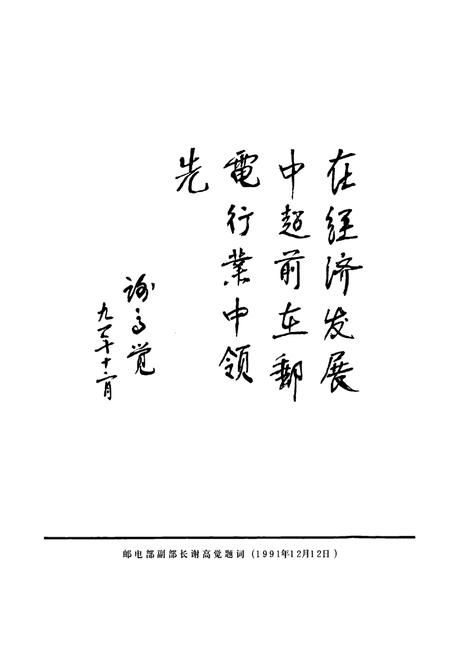 在经济发展
中超前在郵
電行業中領
先
谢高觉
九一年十二月
邮电部副部长谢高觉题词(1991年12月12日)